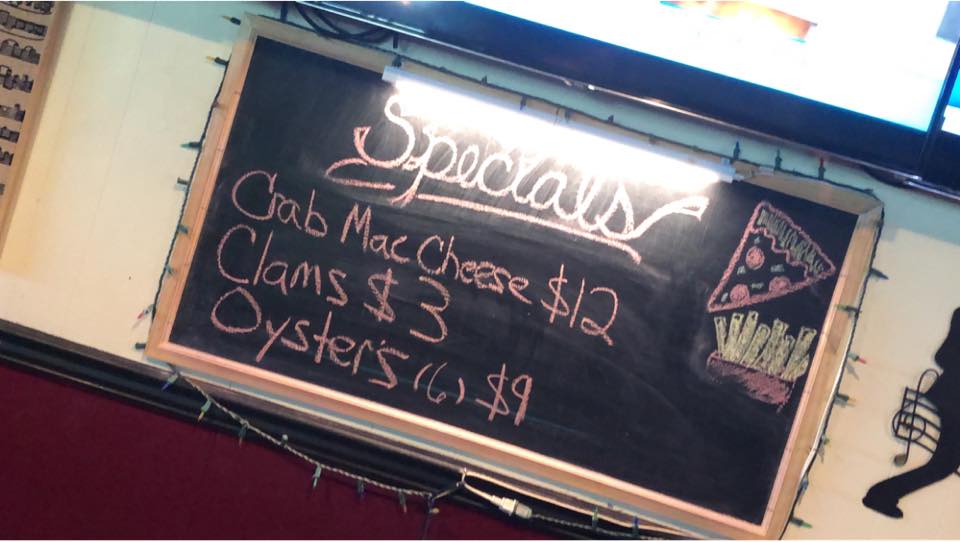 Specials
Crab Mac Cheese $12
Clams $3
Oyster's (6) $9